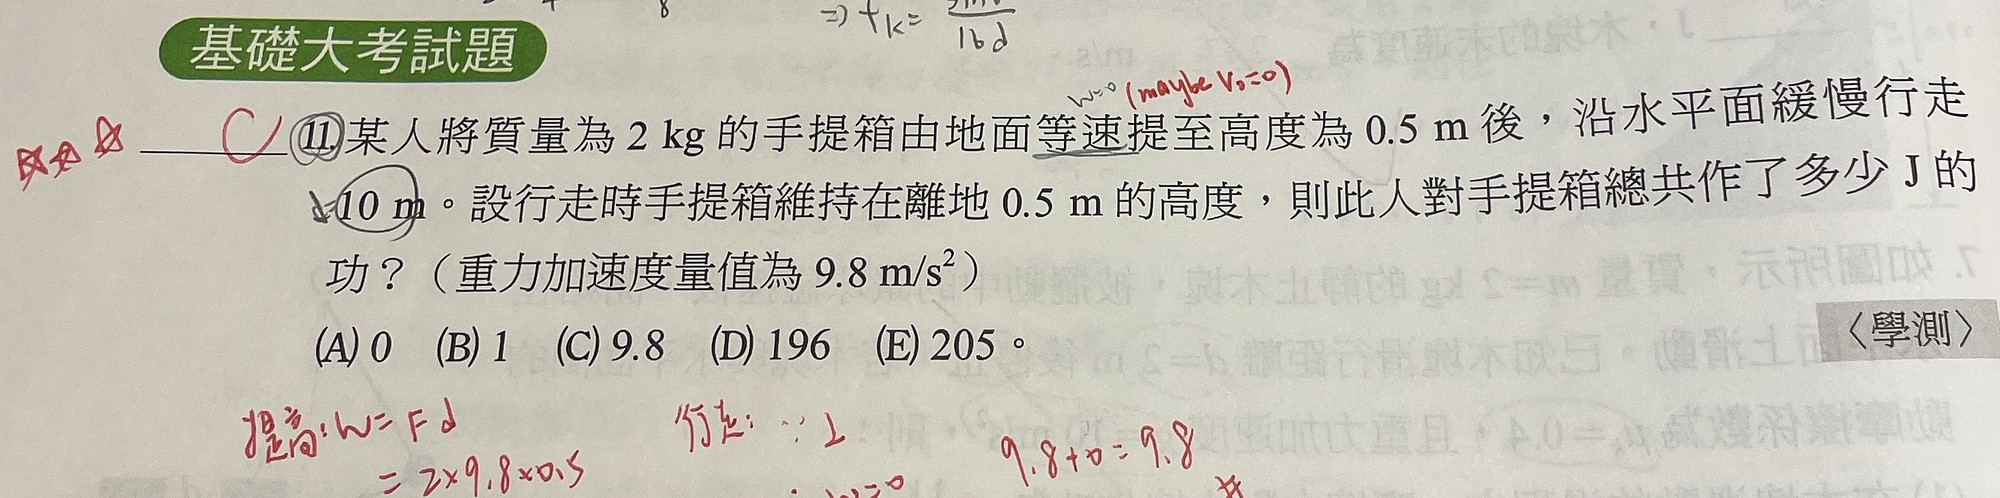 ⇒ fk=
16d
基礎大考試題
w=0 (maybe V₀=0)
C 11. 某人將質量為 2 kg 的手提箱由地面等速提至高度為 0.5 m 後，沿水平面緩慢行走
10 m。設行走時手提箱維持在離地 0.5 m 的高度，則此人對手提箱總共作了多少 J 的
功？（重力加速度量值為 9.8 m/s²）
(A) 0 (B) 1 (C) 9.8 (D) 196 (E) 205。
〈學測〉
提高：W=Fd
=2×9.8×0.5
行走：∵⊥
w=0
9.8+0=9.8
#